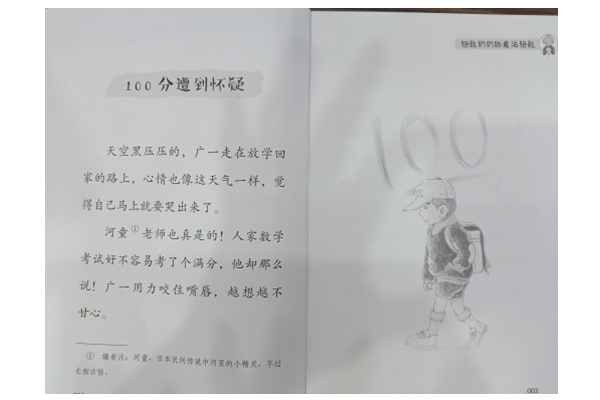 100分遭到怀疑
天空黑压压的，广一走在放学回
家的路上，心情也像这天气一样，觉
得自己马上就要哭出来了。
河童①老师也真是的！人家数学
考试好不容易考了个满分，他却那么
说！广一用力咬住嘴唇，越想越不
甘心。
① 编者注：河童：日本民间传说中河里的小精灵，不过
长相古怪。
钥匙奶奶的魔法钥匙
100
003